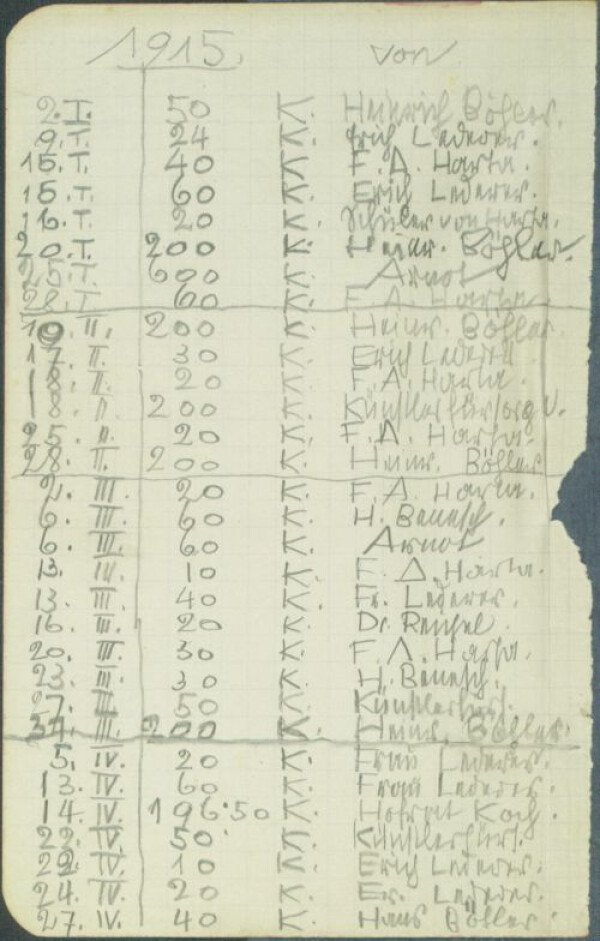 1915. von
2. I. 50 K. Heinrich Böhler.
9. I. 24 K. Erich Lederer.
15. I. 40 K. F. A. Harta.
15. I. 60 K. Erich Lederer.
16. I. 20 K. Schüler von Harta.
20. I. 200 K. Heinr. Böhler.
25. I. 600 K. Arnot
28. I. 60 K. F. A. Harta
10. II. 200 K. Heinr. Böhler
17. II. 30 K. Erich Lederer
18. II. 20 K. F. A. Harta.
18. II. 200 K. Künstlerfürsorg V.
25. II. 20 K. F. A. Harta.
28. II. 200 K. Heinr. Böhler
2. III. 20 K. F. A. Harta.
6. III. 60 K. H. Benesch.
6. III. 60 K. Arnot
13. III. 10 K. F. A. Harta.
13. III. 40 K. Er. Lederer.
16. III. 20 K. Dr.
20. III. 30 K. F. A. Harta.
23. III. 30 K. H. Benesch.
27. III. 50 K.
31. III. 200 K. Heinr. Böhler.
5. IV. 20 K. Frau Lederer.
13. IV. 60 K. Frau Lederer.
14. IV. 196.50 K. Hofrat Koch.
22. IV. 50 K.
22. IV. 10 K. Erich Lederer.
24. IV. 20 K. Er. Lederer.
27. IV. 40 K. Hans Böhler.